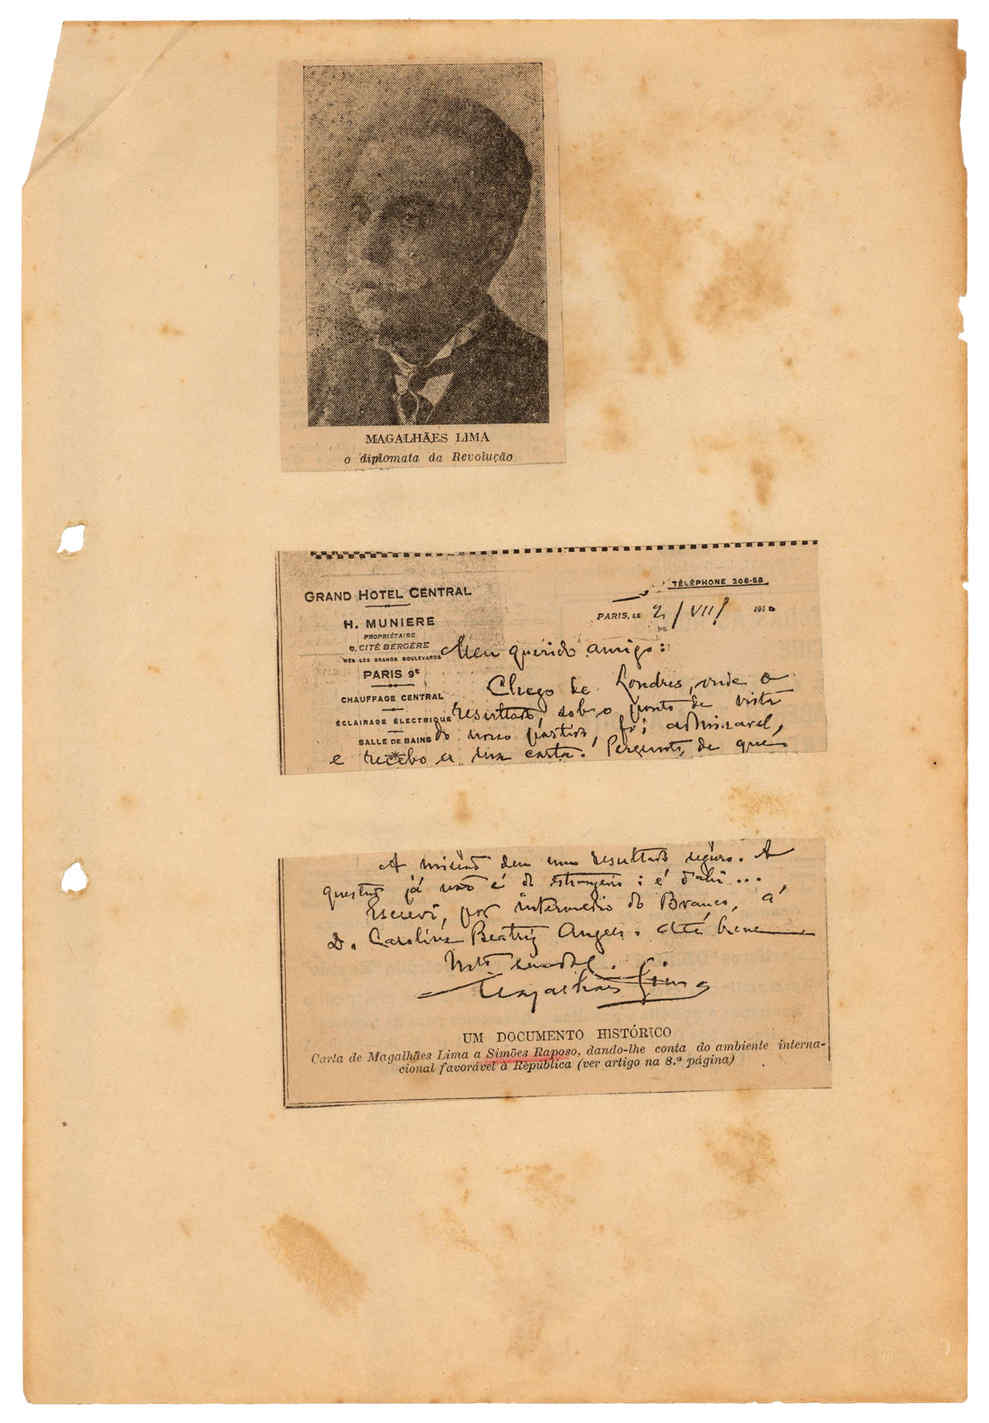 MAGALHÃES LIMA
o diplomata da Revolução
GRAND HOTEL CENTRAL
H. MUNIERE
PROPRIÉTAIRE
CITÉ BERGÈRE
PRÈS LES GRANDS BOULEVARDS
PARIS 9ᵉ
CHAUFFAGE CENTRAL
ÉCLAIRAGE ÉLECTRIQUE
SALLE DE BAINS
TÉLÉPHONE 206-68
PARIS, LE 2/VII/ 1910
Meu querido amigo:
Chego de Londres, onde o
resultado, sob o ponto de vista
do nosso partido, foi admiravel,
e recebo a sua carta. Pergunta, de que
A missão deu um resultado seguro. A
questão já não é do estrangeiro: é d'ahi...
Escrevi, por intermedio do Branco, á
D. Carolina Beatriz Angelo. Até breve
Magalhães Lima
UM DOCUMENTO HISTÓRICO
Carta de Magalhães Lima a Simões Raposo, dando-lhe conta do ambiente interna-
cional favorável à República (ver artigo na 8.ª página)